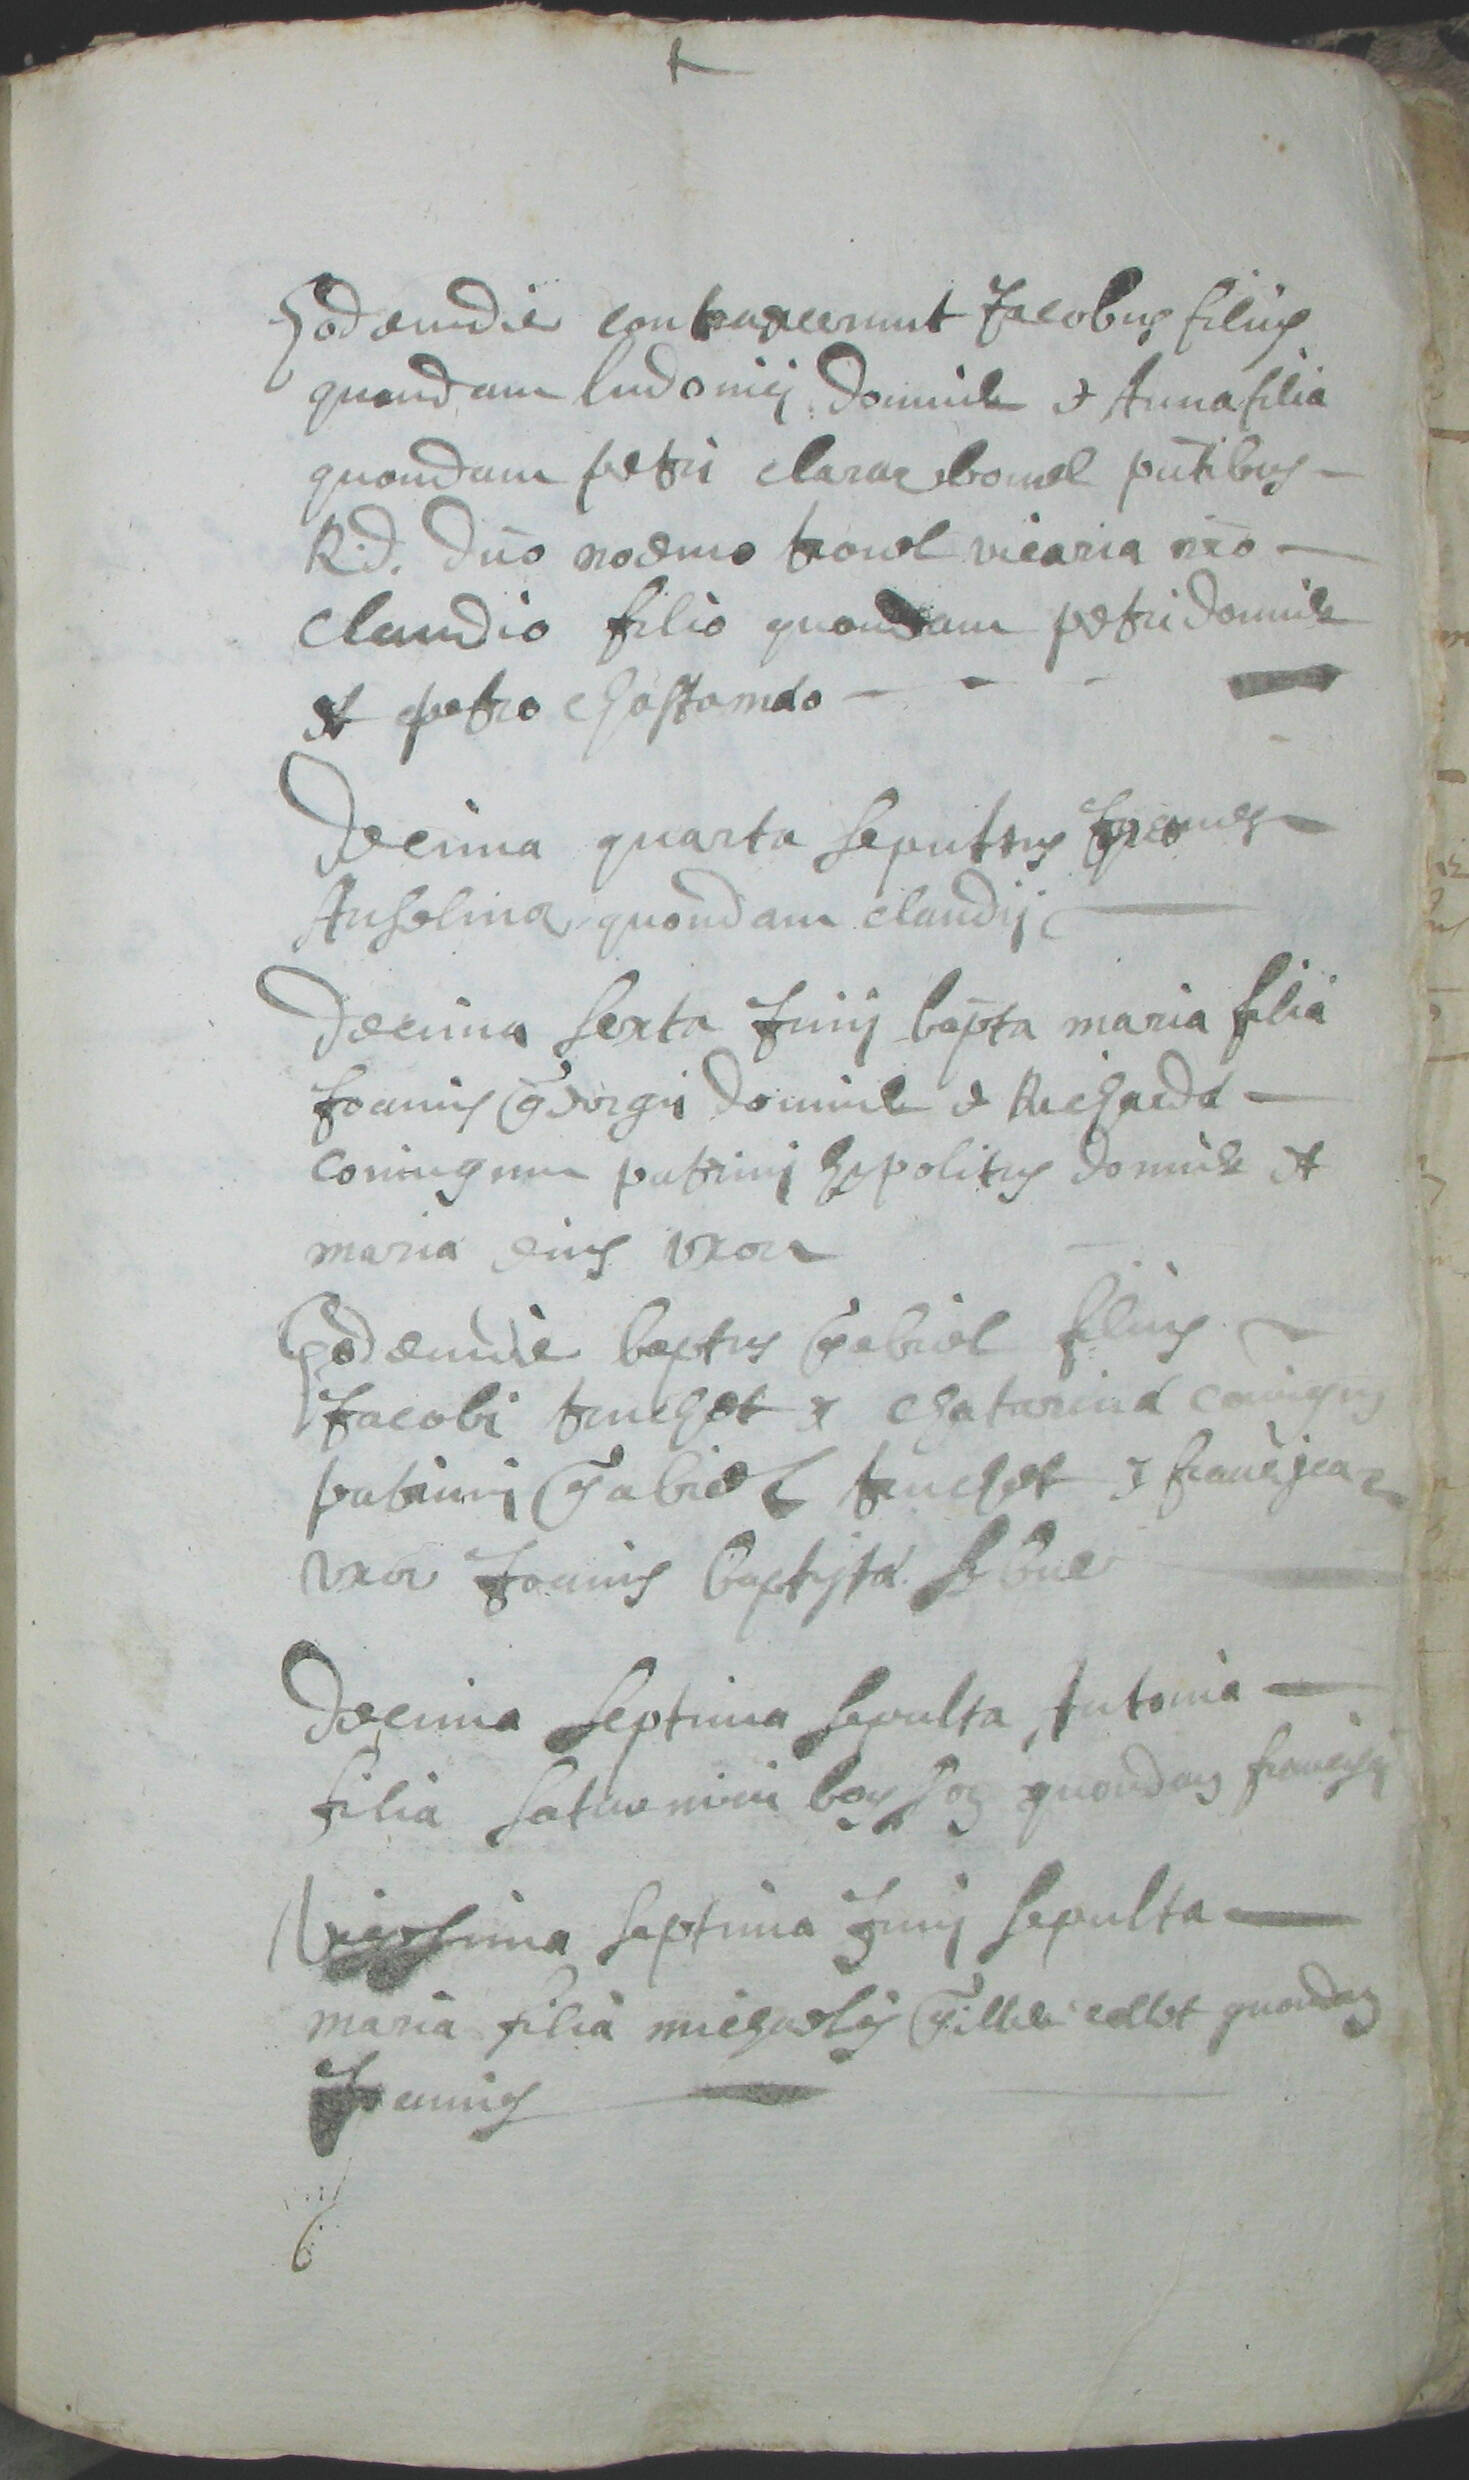 Eodemdie contraxerunt Jacobus filius
quondam ludovici Domicile & Anna filia
quondam petri clararebouvel pntibus
R.d. Dno noemo trovel vicaria nro
Claudio filio quondam petri domicile
et petro chastamdo
Decima quarta sepultus
Anselina quondam claudij
Decima sexta Junij bapta maria filia
Joanis Georgii Domicile & Richarda
coniugum patrini hypolitus domicile et
maria eius vxor
Eodemdie baptus Gabriel filius
Jacobi truchet & Chatarina coniugus
patrini Gabriel truchet & francisca
vxor Joanis baptista
Decima septima sepulta Antonia
filia saturnini quondam francisci
Vigesima septima Junij sepulta
maria filia michaelis Gillile collet quondam
Joannis